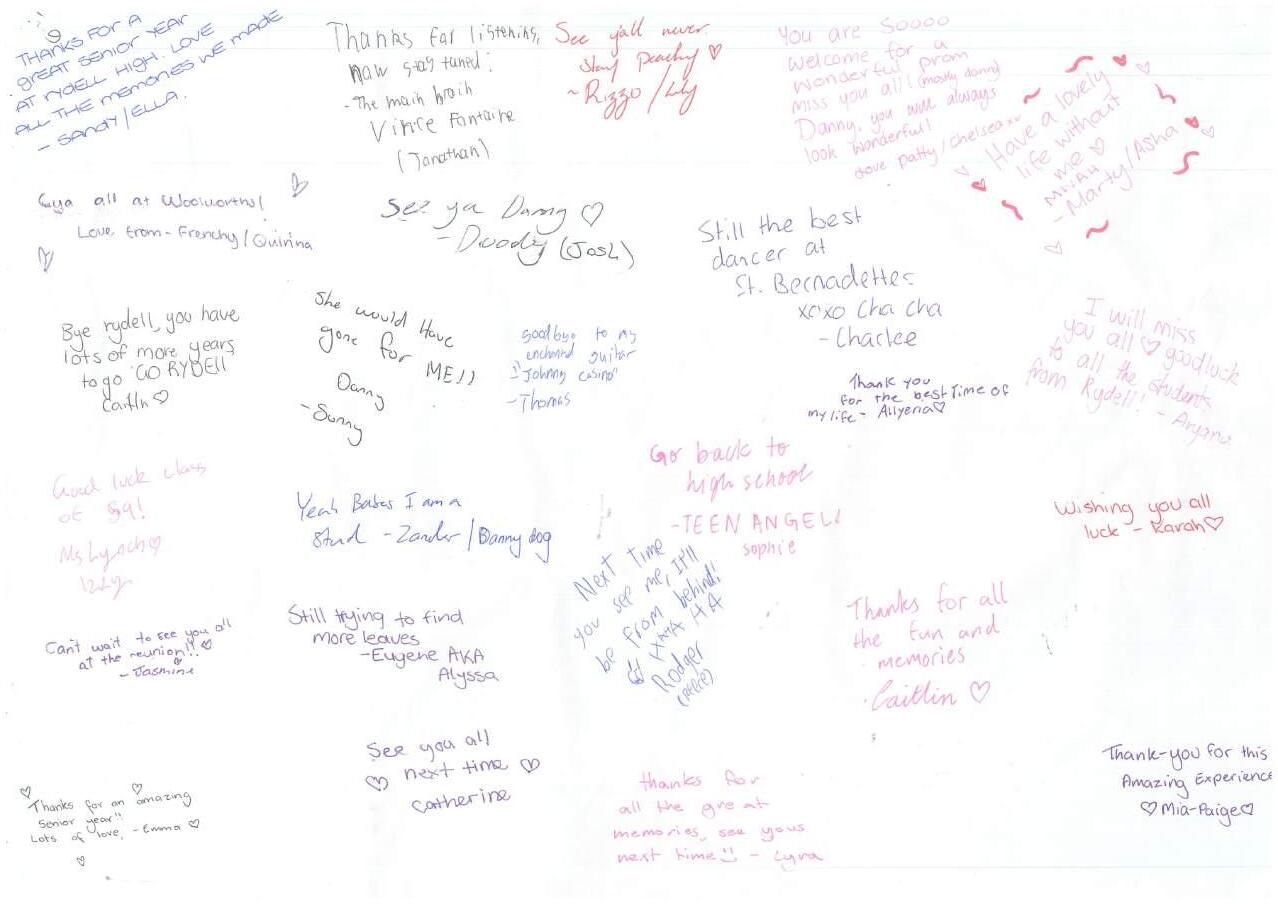 THANKS FOR A
GREAT SENIOR YEAR
AT RYDELL HIGH. LOVE
ALL THE MEMORIES WE MADE
- SANDY/ELLA.
Thanks for listening,
now stay tuned!
- The main brain
Vince Fontaine
(Jonathan)
See y'all never.
Stay Peachy ♡
~ Rizzo / Lily
You are Soooo
Welcome for a
wonderful prom
miss you all! (mostly danny)
Danny, you will always
look wonderful!
love patty/chelsea xx
Have a lovely
life without
me ♡
MWAH
- Marty/Asha
Cya all at Woolworths!
Love from - Frenchy/Quirina
See ya Danny ♡
- Doody (Josh)
Still the best
dancer at
St. Bernadettes
xoxo Cha cha
- Charlee
Bye rydell, you have
lots of more years
to go GO RYDELL
Caitln ♡
She would Have
gone for ME!!
Danny
- Sunny
goodbye to my
guitar
"Johnny casino"
- Thomas
Thank you
for the best Time of
my life - Allyena ♡
I will miss
you all ♡ goodluck
to all the students
from Rydell! - Aryana
Good luck class
of 59!
Ms Lynch ♡
Yeah Babes I am a
Stud - Zander / Danny dog
Go back to
high school
- TEEN ANGEL!
sophie
Wishing you all
luck - Karah ♡
Next Time
you see me, It'll
be from behind!
HA HA
Rodger
Can't wait to see you all
at the reunion!! ♡
- Jasmine
Still trying to find
more leaves
- Eugene AKA
Alyssa
Thanks for all
the fun and
memories
Caitlin ♡
See you all
♡ next time ♡
Catherine
Thank-you for this
Amazing Experience
♡ Mia-Paige ♡
Thanks for an amazing
senior year!!
Lots of love, - Emma ♡
thanks for
all the great
memories, see yous
next time!! - Lyra